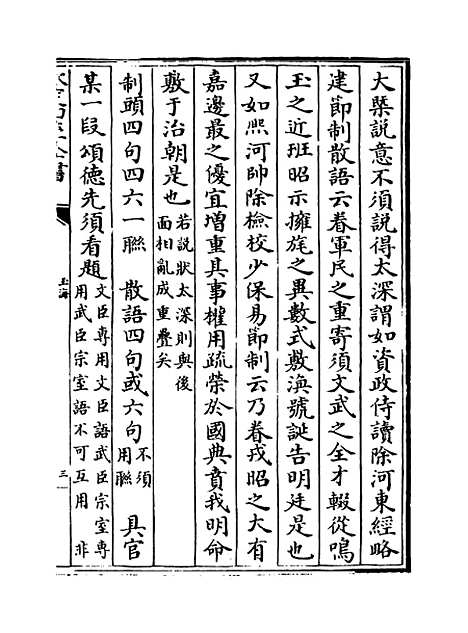 大槩説意不須説得太深謂如資政侍讀除河東經略
建節制散語云眷軍民之重寄須文武之全才輟從鳴
玉之近班昭示擁旄之異數式敷渙號誕告明廷是也
又如熈河帥除檢校少保易節制云乃眷戎昭之大有
嘉邊最之優宜増重其事權用疏榮於國典賁我明命
敷于治朝是也若説狀太深則與後面相亂成重疊矣
制頭四句四六一聯　散語四句或六句不須用聯　具官
某一段頌德先須看題文臣専用文臣語武臣宗室専用武臣宗室語不可互用　非